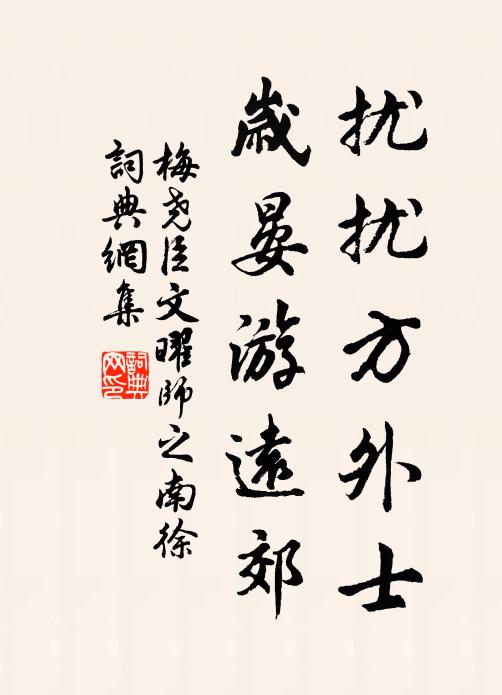 扰扰方外士
歳晏游遠郊
梅尧臣文曜师之南徐
詞典網集
詞典网印